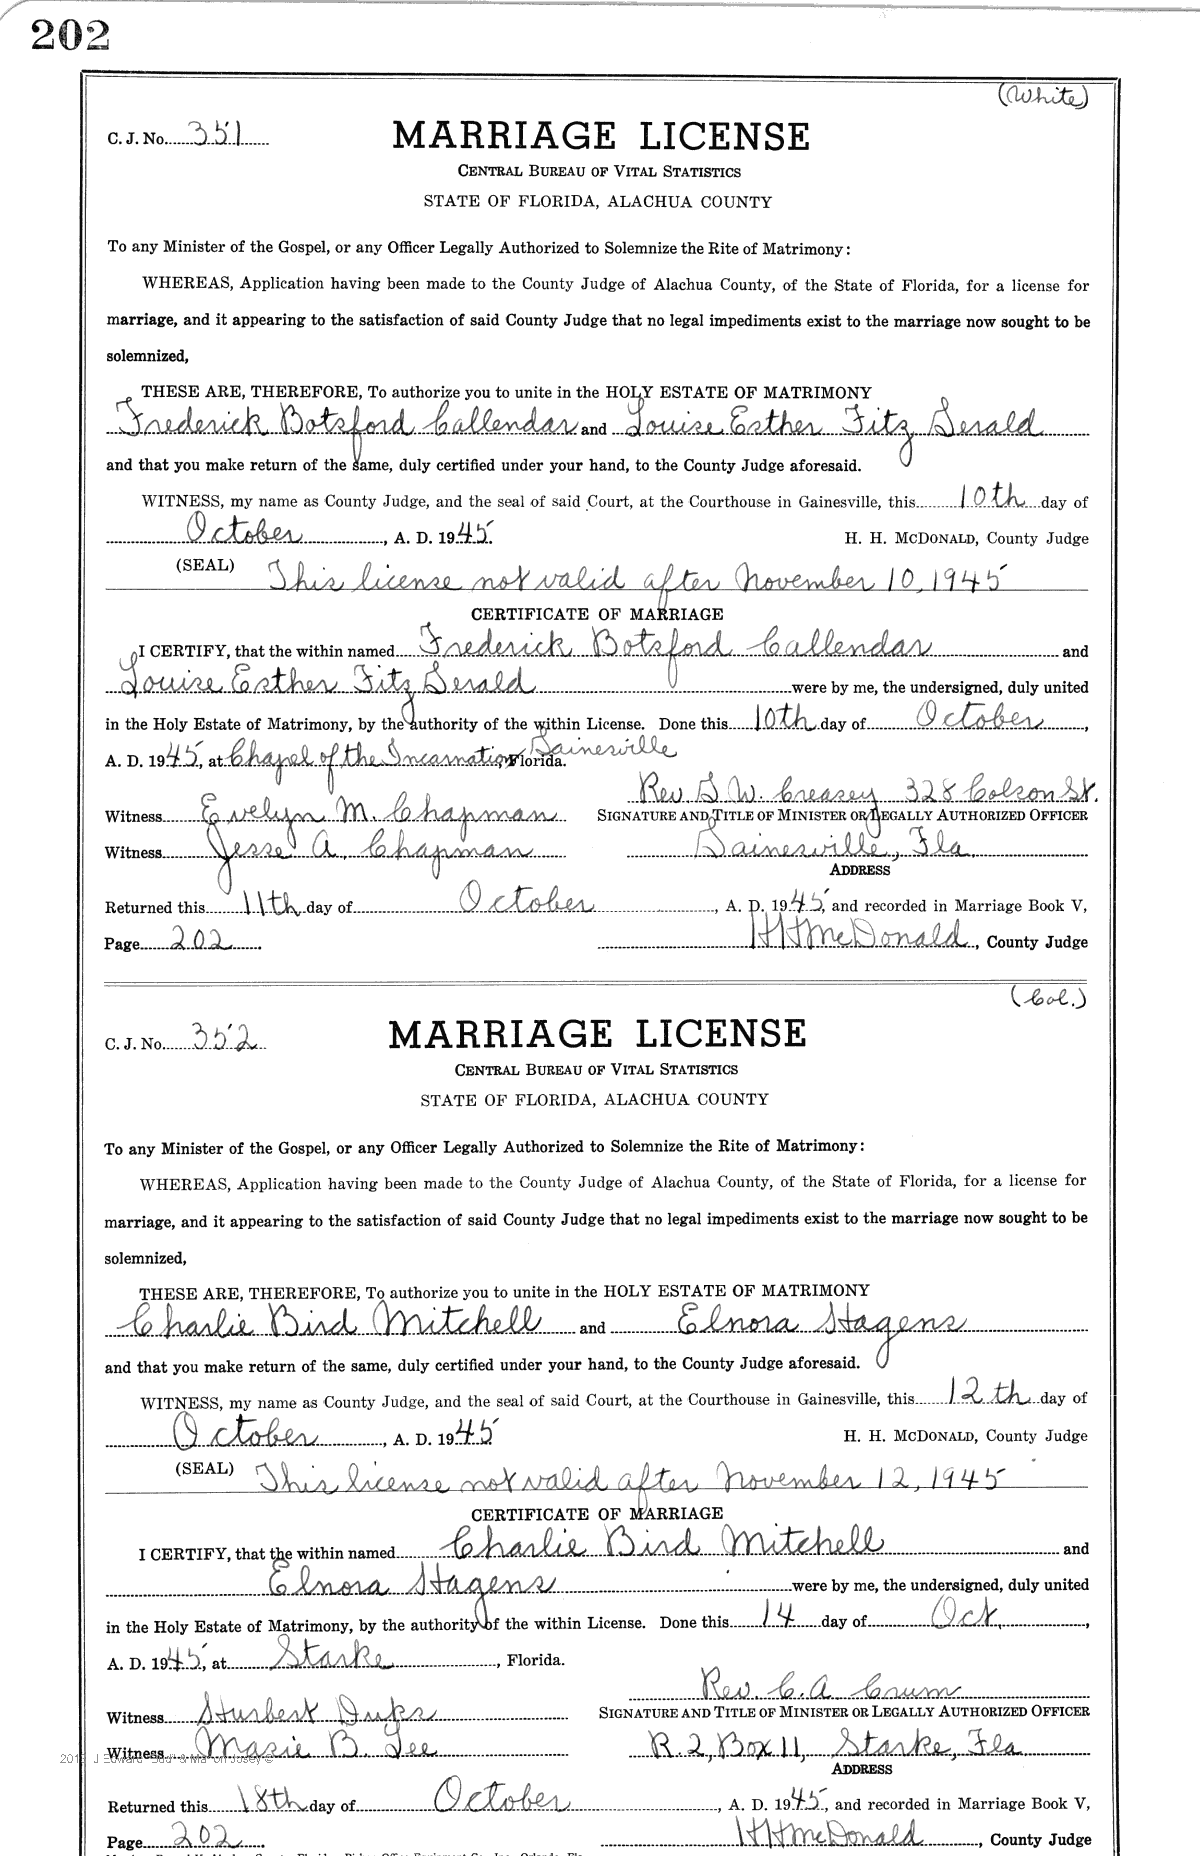 202
(White)
C. J. No. 351
MARRIAGE LICENSE
CENTRAL BUREAU OF VITAL STATISTICS
STATE OF FLORIDA, ALACHUA COUNTY
To any Minister of the Gospel, or any Officer Legally Authorized to Solemnize the Rite of Matrimony:
WHEREAS, Application having been made to the County Judge of Alachua County, of the State of Florida, for a license for
marriage, and it appearing to the satisfaction of said County Judge that no legal impediments exist to the marriage now sought to be
solemnized,
THESE ARE, THEREFORE, To authorize you to unite in the HOLY ESTATE OF MATRIMONY
Frederick Botsford Callendar and Louise Esther Fitz Gerald
and that you make return of the same, duly certified under your hand, to the County Judge aforesaid.
WITNESS, my name as County Judge, and the seal of said Court, at the Courthouse in Gainesville, this 10th day of
October, A. D. 1945. H. H. McDONALD, County Judge
(SEAL) This license not valid after November 10, 1945
CERTIFICATE OF MARRIAGE
I CERTIFY, that the within named Frederick Botsford Callendar and
Louise Esther Fitz Gerald were by me, the undersigned, duly united
in the Holy Estate of Matrimony, by the authority of the within License. Done this 10th day of October,
A. D. 1945, at Chapel of the Incarnation, Gainesville Florida.
Rev. G. W. Creasey 328 Colson St.
Witness Evelyn M. Chapman SIGNATURE AND TITLE OF MINISTER OR LEGALLY AUTHORIZED OFFICER
Witness Jesse A. Chapman Gainesville, Fla.
ADDRESS
Returned this 11th day of October, A. D. 1945, and recorded in Marriage Book V,
Page 202 H H McDonald, County Judge
(Col.)
C. J. No. 352
MARRIAGE LICENSE
CENTRAL BUREAU OF VITAL STATISTICS
STATE OF FLORIDA, ALACHUA COUNTY
To any Minister of the Gospel, or any Officer Legally Authorized to Solemnize the Rite of Matrimony:
WHEREAS, Application having been made to the County Judge of Alachua County, of the State of Florida, for a license for
marriage, and it appearing to the satisfaction of said County Judge that no legal impediments exist to the marriage now sought to be
solemnized,
THESE ARE, THEREFORE, To authorize you to unite in the HOLY ESTATE OF MATRIMONY
Charlie Bird Mitchell and Elnora Hagens
and that you make return of the same, duly certified under your hand, to the County Judge aforesaid.
WITNESS, my name as County Judge, and the seal of said Court, at the Courthouse in Gainesville, this 12th day of
October, A. D. 1945 H. H. McDONALD, County Judge
(SEAL) This license not valid after November 12, 1945
CERTIFICATE OF MARRIAGE
I CERTIFY, that the within named Charlie Bird Mitchell and
Elnora Hagens were by me, the undersigned, duly united
in the Holy Estate of Matrimony, by the authority of the within License. Done this 14 day of Oct.,
A. D. 1945, at Starke, Florida.
Rev. C. A. Crum
Witness Hurbert Duks SIGNATURE AND TITLE OF MINISTER OR LEGALLY AUTHORIZED OFFICER
Witness Masie B. Lee R. 2, Box 11, Starke, Fla.
ADDRESS
Returned this 18th day of October, A. D. 1945, and recorded in Marriage Book V,
Page 202 H H McDonald, County Judge